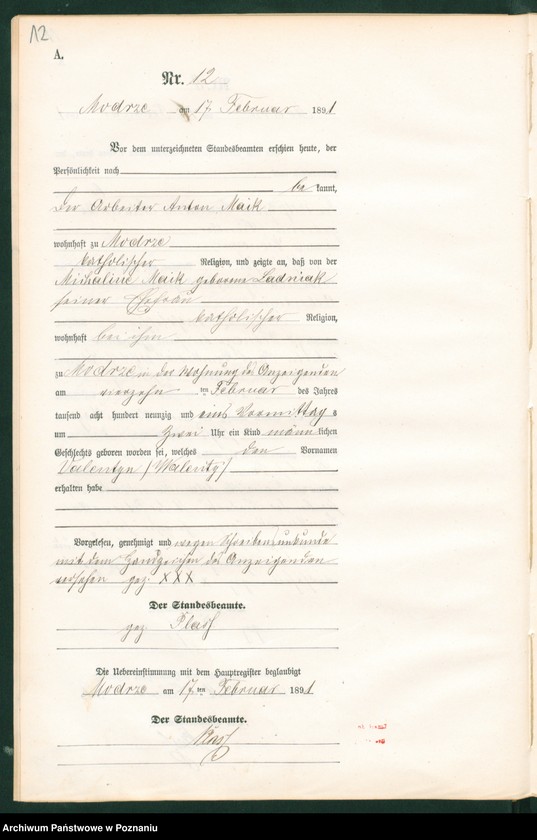 12
A.
Nr. 12
Modrze am 17. Februar 1891
Vor dem unterzeichneten Standesbeamten erschien heute, der
Persönlichkeit nach
be kannt,
der Arbeiter Anton Maik
wohnhaft zu Modrze
katholischer Religion, und zeigte an, daß von der
Michaline Maik geborene Ladniak
seiner Ehefrau
katholischer Religion,
wohnhaft bei ihm
zu Modrze in der Wohnung des Anzeigenden
am vierzehn ten Februar des Jahres
tausend acht hundert neunzig und eins Vormittag s
um zwei Uhr ein Kind männ lichen
Geschlechts geboren worden sei, welches den Vornamen
Valentyn (Walenty)
erhalten habe
Vorgelesen, genehmigt und wegen Schreibensunkunde
mit dem Handzeichen des Anzeigenden
versehen gez. XXX
Der Standesbeamte.
gez
Die Uebereinstimmung mit dem Hauptregister beglaubigt
Modrze am 17 ten Februar 1891
Der Standesbeamte.
Archiwum Państwowe w Poznaniu